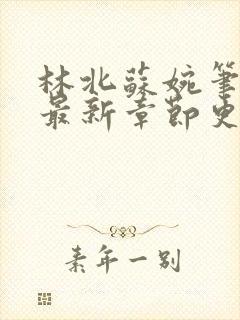 林北蘇婉筆
最新章節史
素年一别